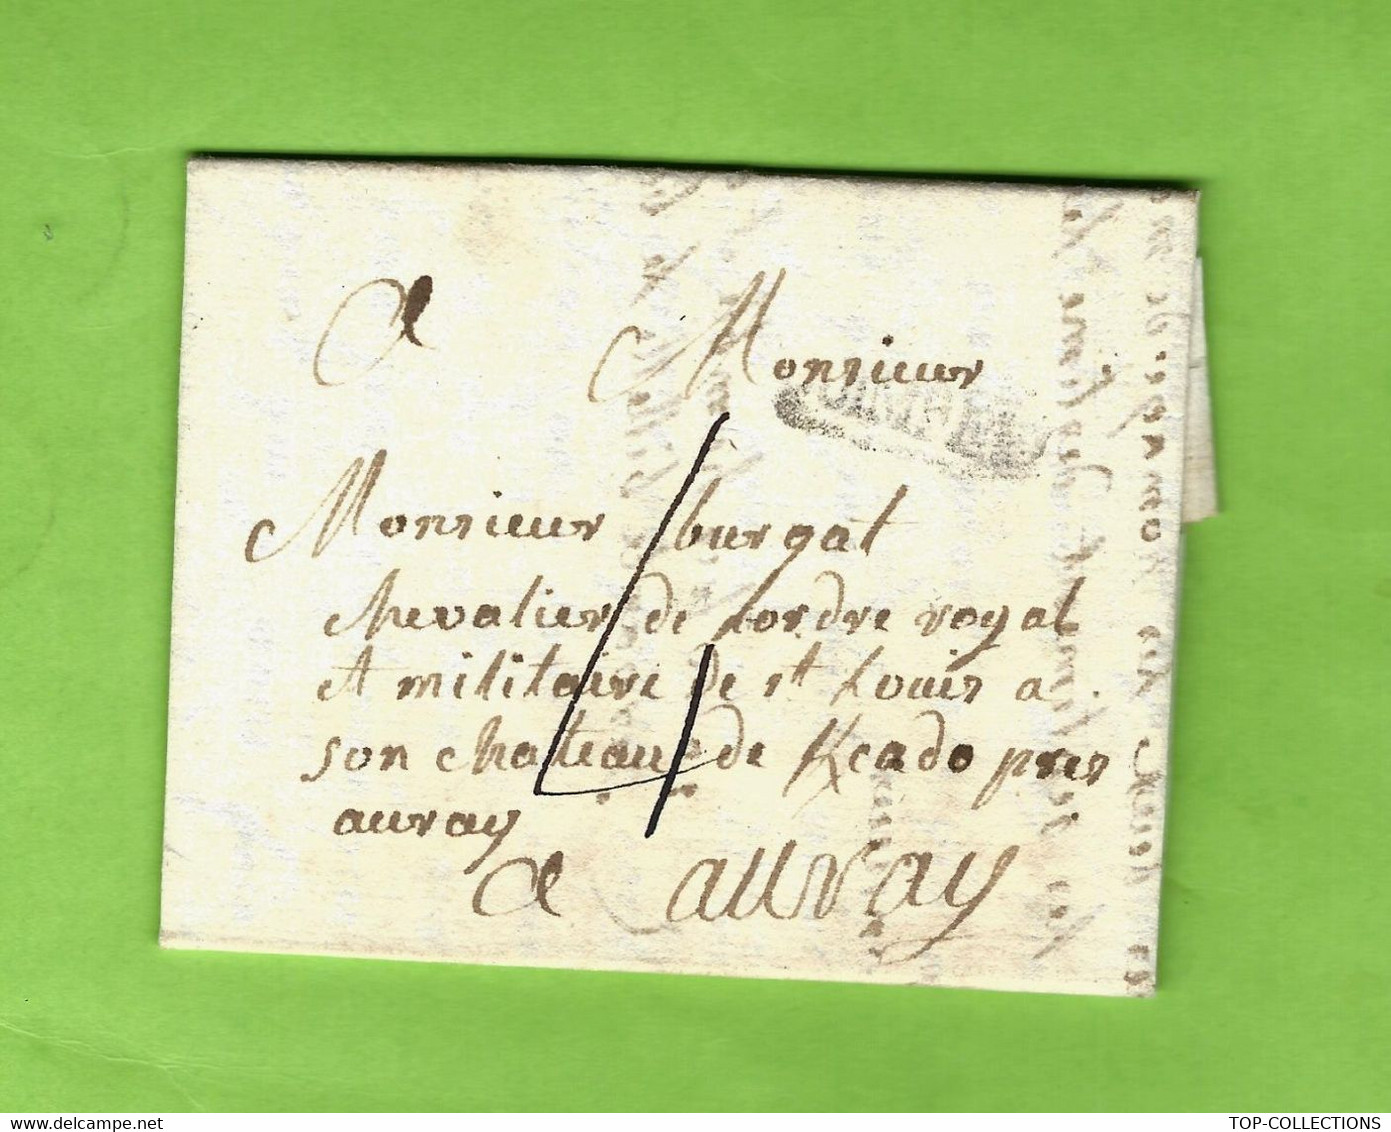 A Monsieur
Monsieur burgat
chevalier de Lordre royal
et militaire de st Louis a
son chateau de Kcado pres
auray
A auray
4
www.delcampe.net
TOP-COLLECTIONS